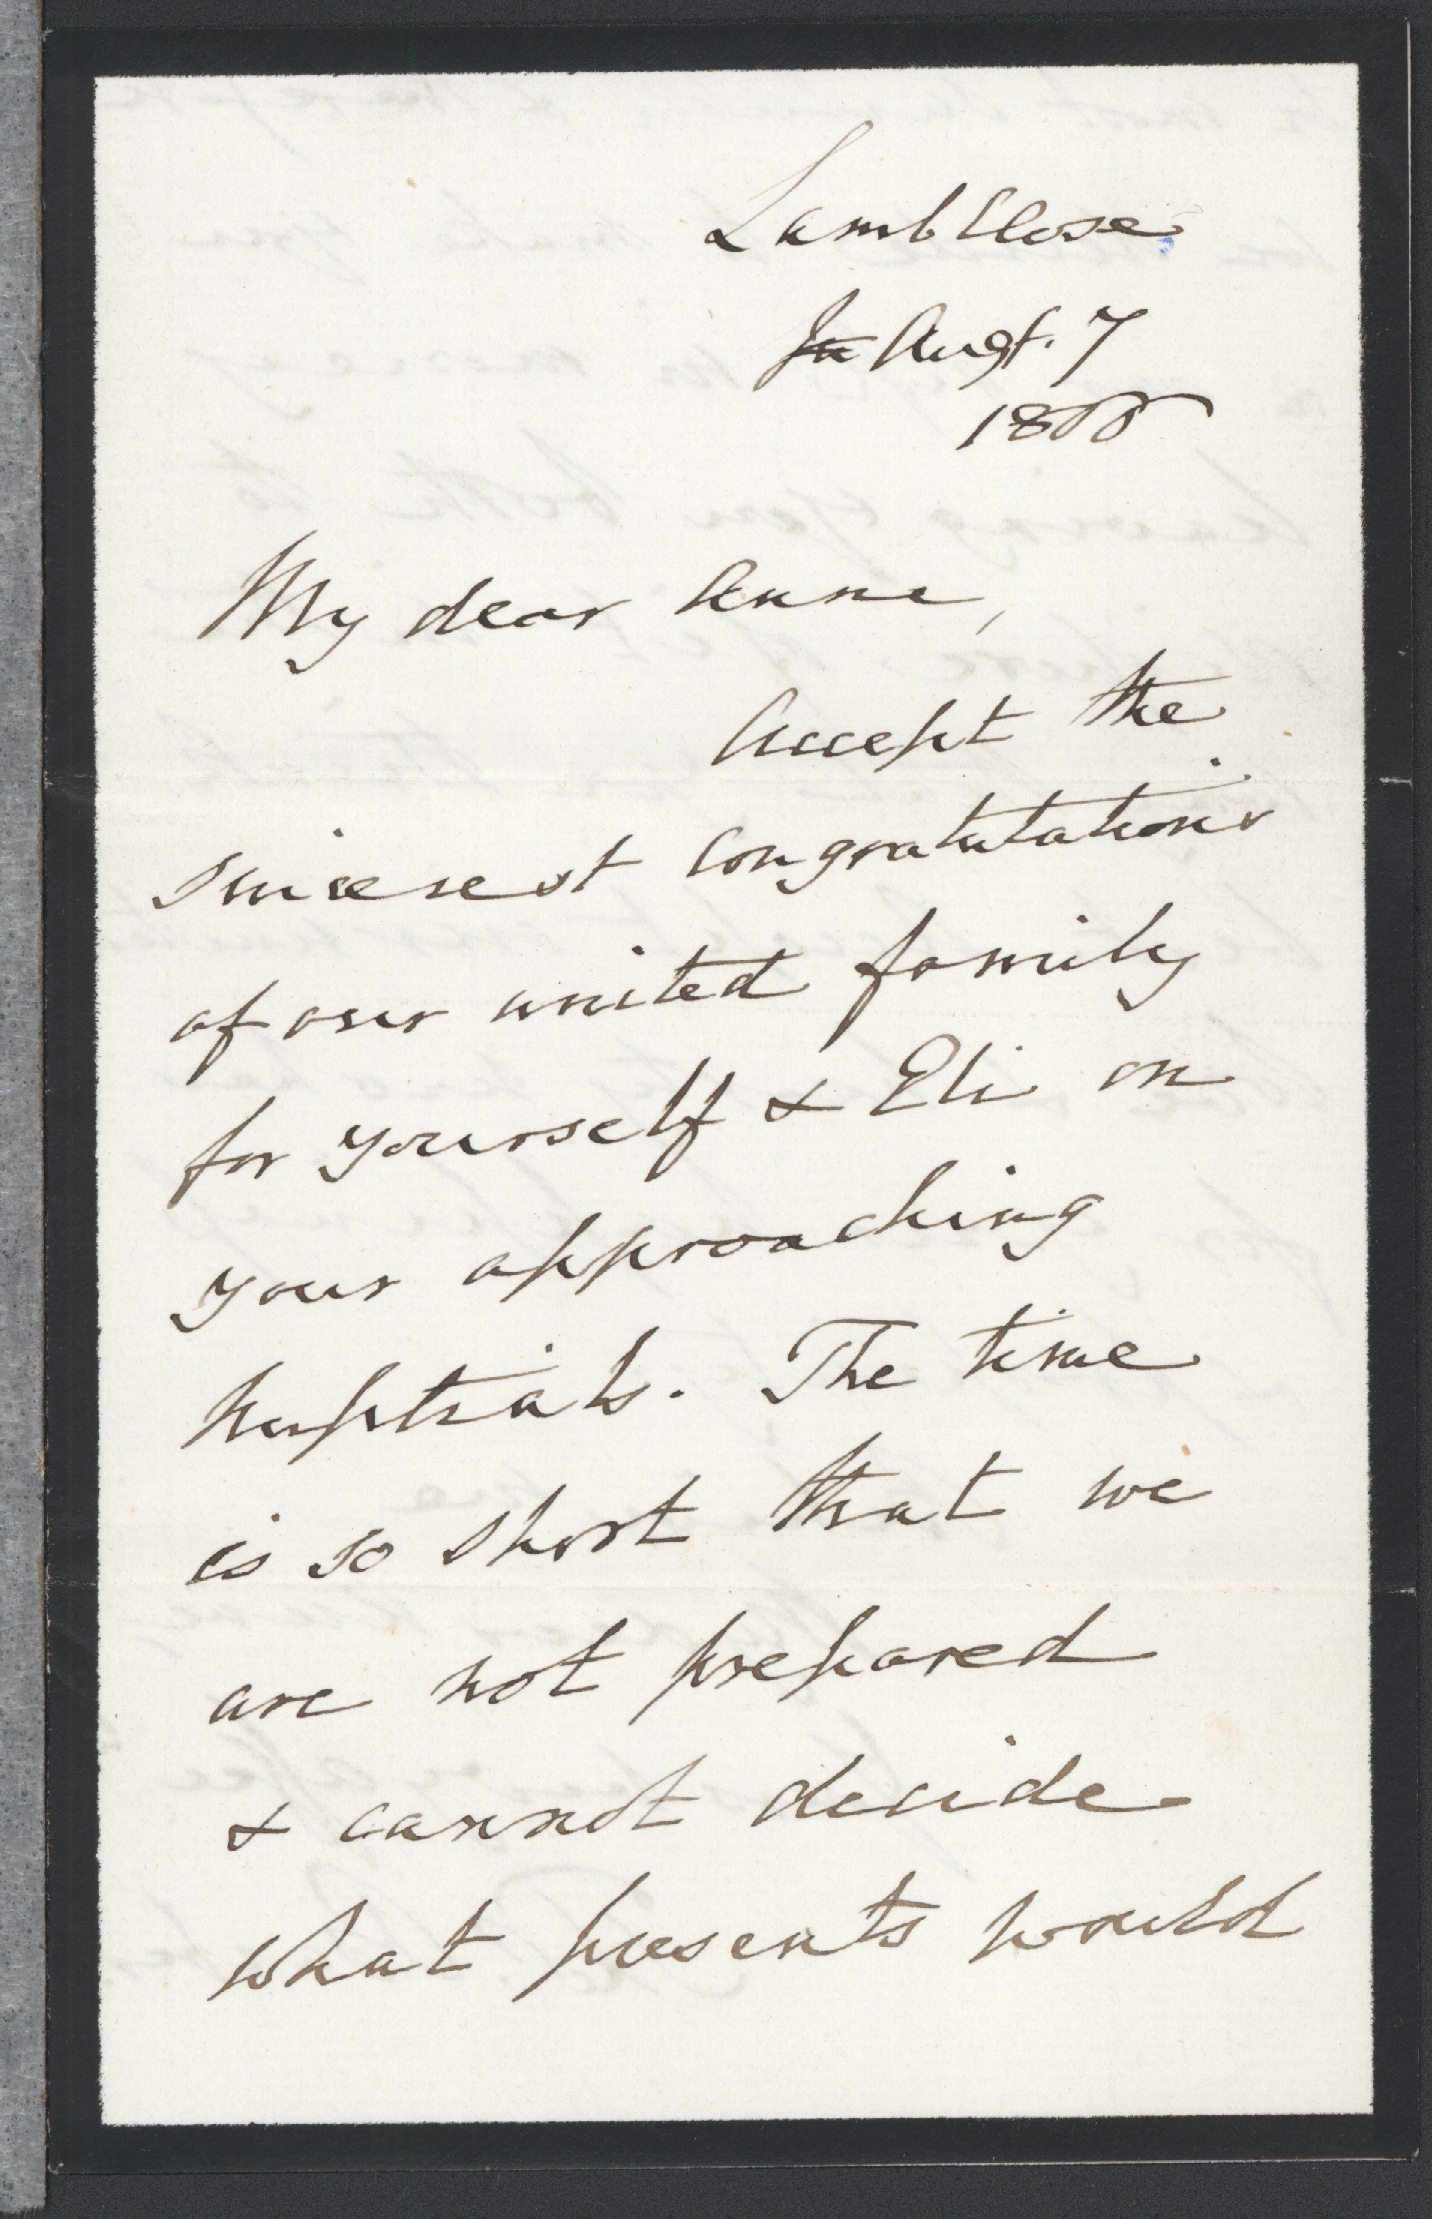 Lamb Close
Ju Augt. 7
My dear Anna,
Accept the
sincerest congratulations
of our united family
for yourself & Eli on
your approaching
nuptials. The time
is so short that we
are not prepared
& cannot decide
what presents would